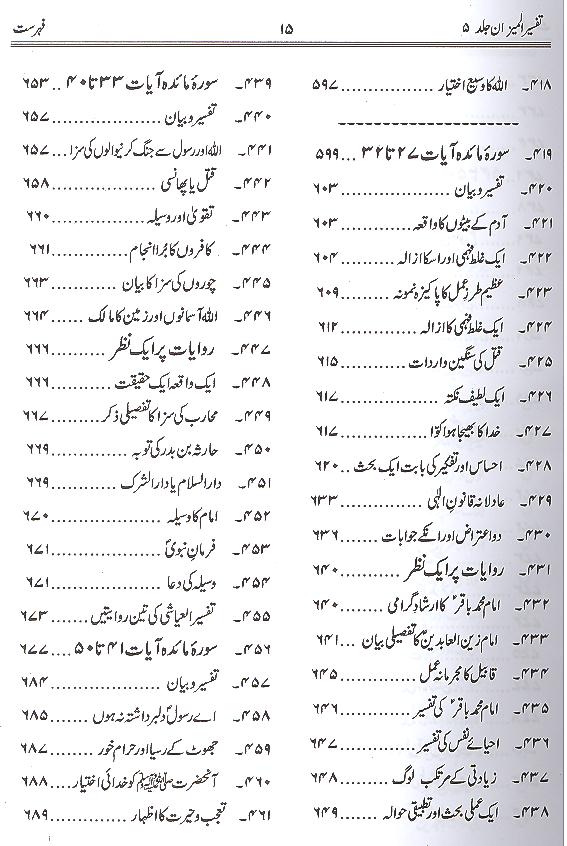 تفسیر المیزان جلد ۵
۱۵
فہرست
۴۱۸۔ اللہ کا وسیع اختیار ................ ۵۹۷
۴۱۹۔ سورۂ مائدہ آیات ۲۷ تا ۳۲ ... ۵۹۹
۴۲۰۔ تفسیر و بیان .................. ۶۰۳
۴۲۱۔ آدم کے بیٹوں کا واقعہ .......... ۶۰۳
۴۲۲۔ ایک غلط فہمی اور اسکا ازالہ .......... ۶۰۴
۴۲۳۔ عظیم طرز عمل کا پاکیزہ نمونہ ......... ۶۰۹
۴۲۴۔ ایک غلط فہمی کا ازالہ .............. ۶۱۲
۴۲۵۔ قتل کی سنگین واردات ............ ۶۱۵
۴۲۶۔ ایک لطیف نکتہ ................ ۶۱۷
۴۲۷۔ خدا کا بھیجا ہوا کوّا .............. ۶۱۷
۴۲۸۔ احساس اور تفکیر کی بابت ایک بحث .. ۶۲۰
۴۲۹۔ عادلانہ قانون الٰہی .............. ۶۳۳
۴۳۰۔ دو اعتراض اور انکے جوابات ........ ۶۳۶
۴۳۱۔ روایات پر ایک نظر ............ ۶۴۰
۴۳۲۔ امام محمد باقرؑ کا ارشاد گرامی ........ ۶۴۰
۴۳۳۔ امام زین العابدینؑ کا تفصیلی بیان ... ۶۴۱
۴۳۴۔ قابیل کا مجرمانہ عمل ............. ۶۴۵
۴۳۵۔ امام محمد باقرؑ کی تفسیر ........... ۶۴۶
۴۳۶۔ احیائے نفس کی تفسیر ............ ۶۴۷
۴۳۷۔ زیادتی کے مرتکب لوگ ......... ۶۴۸
۴۳۸۔ ایک عملی بحث اور تطبیقی حوالہ ....... ۶۴۹
۴۳۹۔ سورۂ مائدہ آیات ۳۳ تا ۴۰ .. ۶۵۳
۴۴۰۔ تفسیر و بیان ................ ۶۵۷
۴۴۱۔ اللہ اور رسول سے جنگ کرنیوالوں کی سزا ... ۶۵۷
۴۴۲۔ قتل یا پھانسی ................. ۶۵۸
۴۴۳۔ تقویٰ اور وسیلہ ............... ۶۶۰
۴۴۴۔ کافروں کا برُا انجام ............. ۶۶۱
۴۴۵۔ چوروں کی سزا کا بیان ........... ۶۶۳
۴۴۶۔ اللہ آسمانوں اور زمین کا مالک ...... ۶۶۴
۴۴۷۔ روایات پر ایک نظر .......... ۶۶۶
۴۴۸۔ ایک واقعہ ایک حقیقت ......... ۶۶۶
۴۴۹۔ محارب کی سزا کا تفصیلی ذکر ........ ۶۶۷
۴۵۰۔ حارثہ بن بدر کی توبہ ............ ۶۶۹
۴۵۱۔ دارالسلام یا دارالشرک .......... ۶۶۹
۴۵۲۔ امام کا وسیلہ ................ ۶۷۰
۴۵۳۔ فرمانِ نبویؐ ................ ۶۷۱
۴۵۴۔ وسیلہ کی دعا ................ ۶۷۱
۴۵۵۔ تفسیر العیاشی کی تین روایتیں ...... ۶۷۳
۴۵۶۔ سورۂ مائدہ آیات ۴۱ تا ۵۰ .... ۶۷۷
۴۵۷۔ تفسیر و بیان ................ ۶۸۴
۴۵۸۔ اے رسولؐ دلبرداشتہ نہ ہوں ...... ۶۸۵
۴۵۹۔ جھوٹ کے رسیا اور حرام خور ....... ۶۸۷
۴۶۰۔ آنحضرت ﷺ کو خدائی اختیار ..... ۶۸۸
۴۶۱۔ تعجب و حیرت کا اظہار ............ ۶۸۹